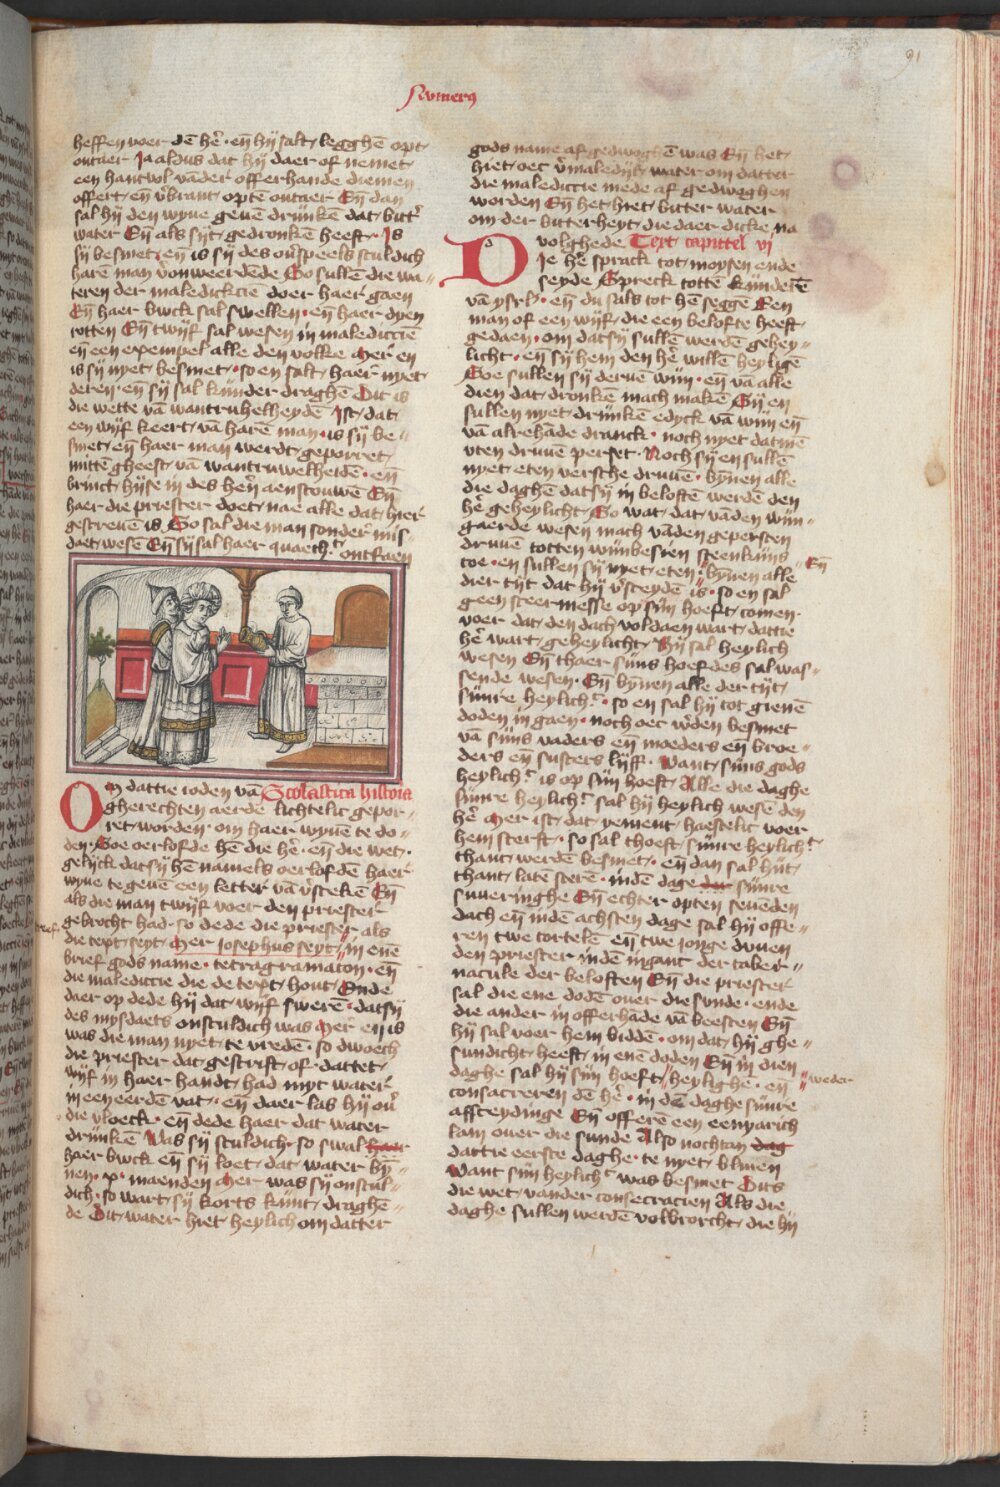 Numerus
91
heffen voer dē hē͛ · eñ hij salt legghē opt
outaer Ja aldus dat hij daer of nemet
een hantvol vāder offerhande diemen
offert eñ v͛brant optē outaer Eñ dan
sal hij den wyue geuē drincken dat bitt͛
water Eñ als sijt gedroncken heeft · Is
sij besmet eñ is sij des ou͛speels sculdich
harē man vonweerdēde So sullē die wa〃
teren der maledickciē doer haer gaen
Eñ haer bwck sal swellen · eñ haer dyen
rotten Eñ twijf sal wesen in maledicciē
eñ een exempel alle den volke Mer en
is sij nyet besmet · so en salt haer nyet
deren · eñ sij sal kinder draghē Dit is
die wette vā wantruhelheydē Ist dat
een wijf keert vā harē man · is sij be〃
smet eñ haer man werdt geporret
mittē gheest vā wantruwelheidē · eñ
brinct hijse in des herē aenscouwē Eñ
haer die priester doet nae alle dat hier
gescreuē is So sal die man sonder mis〃
daet wesē Eñ sij sal haer quaeth͛ ontfaen
Scolastica historia
Om dattie ioden vā
gherechten aerde lichtelic gepor〃
ret worden · om haer wyuē te do〃
den · Soe oerlofde hē die hē͛ · eñ die wet ·
gelijck datsij hē namels oerlofdē haer
wyue te geuē een letter vā v͛stekē Eñ
als die man twijf voer den priester
gebrocht had · so dede die priester als
die text seyt · Mer josephus seyt 〃 in enē
brief gods name · tetragramaton · eñ
die maledictie die de text hout Ende
daer op dede hij dat wijf swerē · datsij
des mysdaets onsculdich was Mer en is
was die man nyet te vredē · so dwoech
die priester dat gescrift of · dattet
wijf in haer handt had myt water
in een eerdē vat · eñ daer las hij ou͛
die vloeck · eñ dede haer dat water
drinkē Was sij sculdich · so swal haer
haer bwck eñ sij loet dat water bīj〃
nen · x · maenden Mer was sij onscul〃
dich · so wart sij korts kint draghē〃
de Dit water hiet heylich om datter
gods name af gedwoghē was Eñ het
hiet oec v͛maledijt water om datter
die maledictie mede af gedweghen
worden Eñ het hiet bitter water
om der bitterheyt die daer dicke na
volghede Text capittel vi
Die hē͛ sprack tot moysen ende
seyde Spreck tottē kinderē
vā ysrl͛ · eñ du sals tot hē seggē Een
man of een wijf die een belofte heeft
gedaen · om datsij sullē werdē gehey〃
licht · eñ sij hem den hē͛ willē heyligē
Soe sullen sij deruē win · eñ vā alle
dien dat droncken mach makē Sij en
sullen nyet drincken edyck vā win eñ
vā alrehāde dranck · noch nyet datmē
vten druuē perset · Noch sij en sullē
nyet eten versche druuē · bynen alle
die daghē datsij in beloftē werdē den
hē͛ geheylicht So wat dat vādē wijn〃
gaerde wesen mach vādē gepersten
druuē totten winbesien steenkins
toe · en sullen sij nyet eten 〃 bynen alle
〃 Eñ
dier tijt dat hij v͛sceydē is · so en sal
geen sceermesse op sijn hoeft comen ·
voer dat den dach voldaen wart dattie
hē͛ wart geheylicht Hij sal heylich
wesen Eñ thaer sijns hoefdes sal was〃
sende wesen · Eñ bynen alle der tijt
sijnre heylich͛ · so en sal hij tot genē
doden in gaen · noch oec w͛den besmet
vā sijns vaders eñ moeders eñ broe〃
ders eñ susters lijff · Want sijns gods
heylich͛ is op sijn hoeft Alle die daghe
sijnre heylich͛ sal hij heylich wesē den
hē͛ Mer ist dat yement haestelic voer
hem sterft · so sal thoeft sijnre heylich͛
thant werdē besmet · eñ dan sal hijt
thant late scerē · indē dage dar sijnre
suueringhe Eñ echter opten seuēden
dach eñ indē achsten dage sal hij offe〃
ren twe tortelē eñ twe jonge duuen
den priester indē ingant der taber〃
nacule der beloften Eñ die priester
sal die ene dodē ouer die sunde · ende
die ander in offerhāde vā beesten Eñ
hij sal voer hem biddē · om dat hij ghe〃
sundicht heeft in enē doden Eñ in dien
daghe sal hij sijn hoeft 〃 heylighē · eñ
〃 weder
consacreren dē hē͛ · in dē daghe sijnre
affsceydinge Eñ offerē een eenyarich
lam ouer die sunde Also nochtan dag
dattie eerste daghe · te nyet bliuen
Want sijn heylich͛ was besmet Dits
die wet vander consecracien Als die
daghe sullen werdē volbrorcht die hij